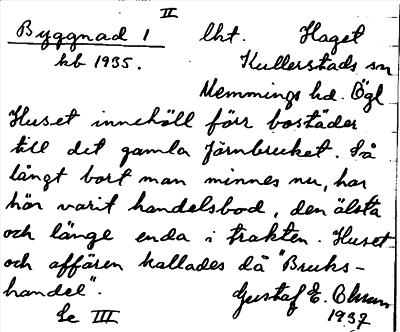 II
Byggnad 1 lht. Haget
hb 1935. Kullerstads sn
Memmings hd. Ögl
Huset innehöll förr bostäder
till det gamla Järnbruket. Så
långt bort man minnes nu, har
här varit handelsbod, den älsta
och länge enda i trakten. Huset
och affären kallades då "Bruks-
handel".
Gustaf E. Ohrn
Se III 1937